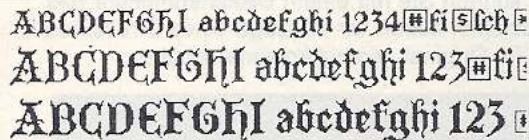 ABCDEFGHI abcdefghi 1234#fi$fch
ABCDEFGHI abcdefghi 123#fi
ABCDEFGHI abcdefghi 123